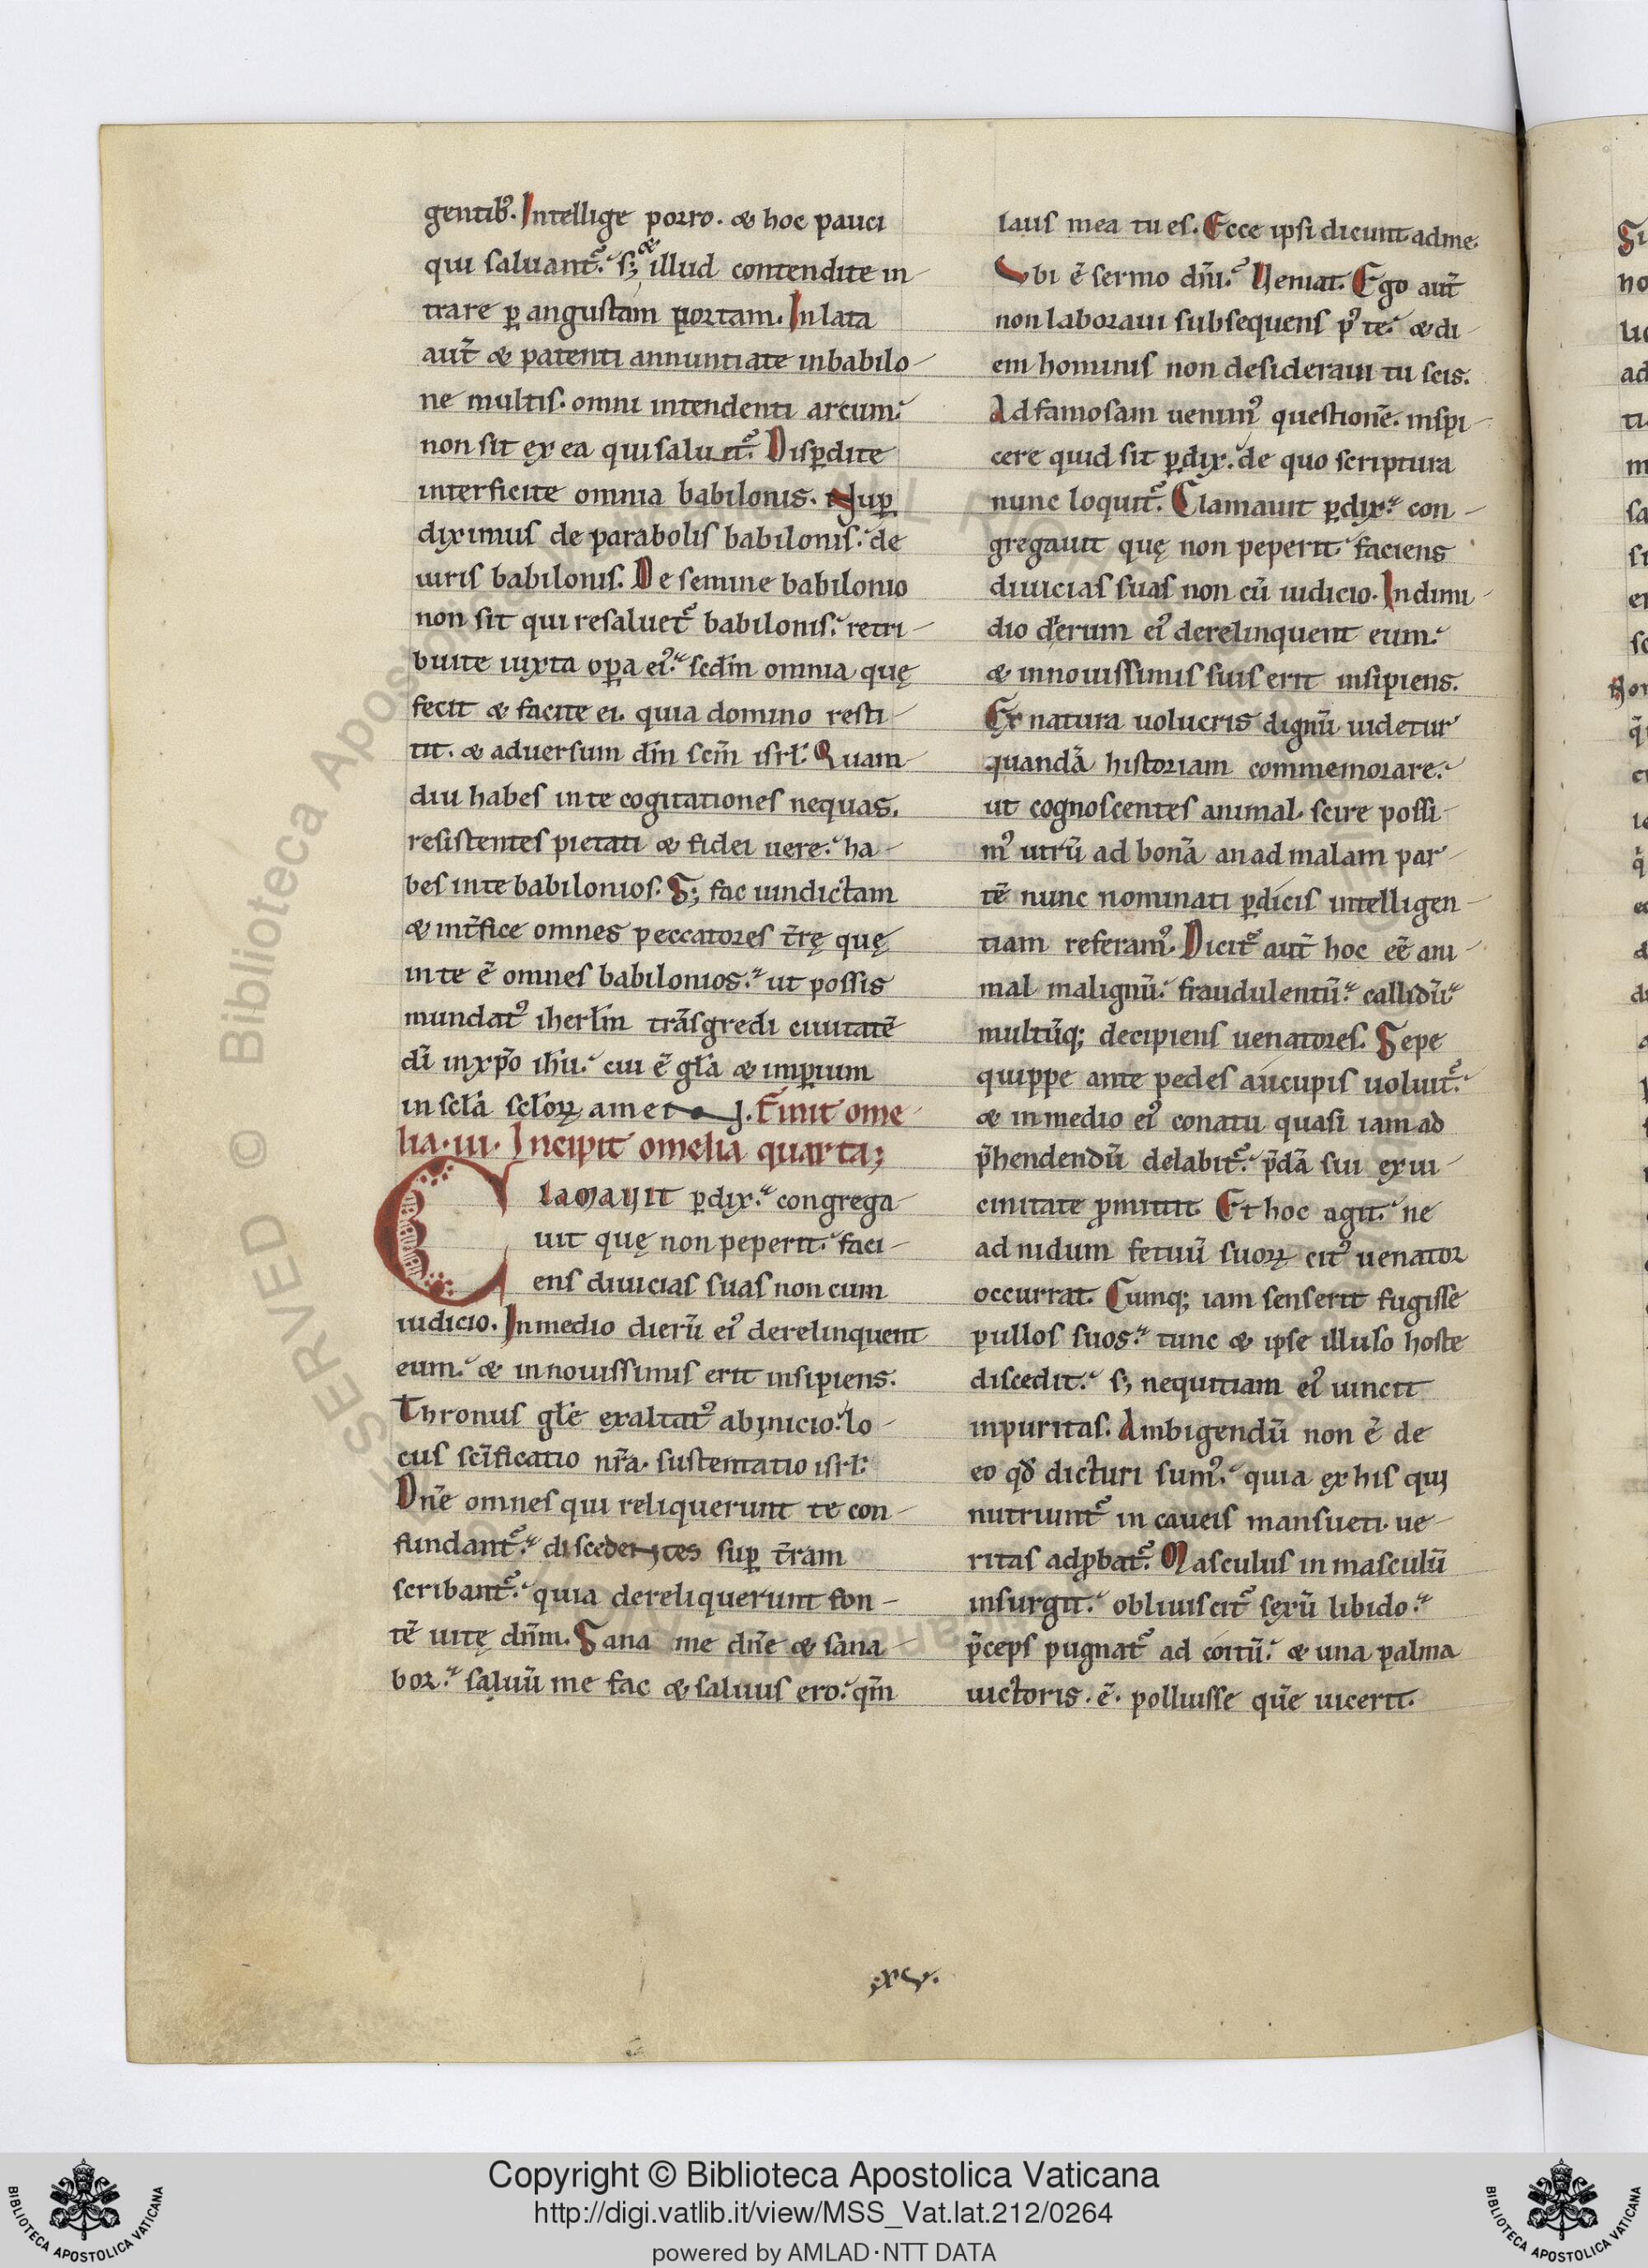 gentib᷒. Intellige porro. & hoc pauci
qui saluant᷑. s; & illud contendite in-
trare ꝑ angustam portam. In lata
aut̄ & patenti annuntiate inbabilo-
ne multis. omni intendenti arcum.
non sit ex ea qui saluet᷑. Disꝑdite
interficite omnia babilonis. Nuꝑ
diximus de parabolis babilonis. de
iuris babilonis. De semine babilonio
non sit qui resaluet᷑ babilonis. retri-
buite iuxta oꝑa ei᷒. scdm̄ omnia quę
fecit & facite ei. quia domino resti-
tit. & aduersum dm̄ scm̄ isrl̄. Quam
diu habes inte cogitationes nequas.
resistentes pietati & fidei uere. ha-
bes inte babilonios. S; fac uindictam
& int̄fice omnes peccatores t̄rę quę
inte ē omnes babilonios. ut possis
mundat᷒ iherlm̄ trāsgredi ciuitatē
dī inxp̄o ihū. cui ē gl̄a & imꝑium
in scl̄a scl̄oꝝ amen. Finit ome-
lia .iii. Incipit omelia quarta;
Clamauit ꝑdix. congrega-
uit quę non peperit. faci-
ens diuicias suas non cum
iudicio. Inmedio dierū ei᷒ derelinquent
eum. & innouissimis erit insipiens.
Thronus gl̄e exaltat᷒ abinicio. lo-
cus scīficatio nr̄a. sustentatio isrl̄.
Dn̄e omnes qui reliquerunt te con-
fundant᷑. discedentes suꝑ t̄ram
scribant᷑. quia dereliquerunt fon-
tē uitę dn̄m. Sana me dn̄e & sana-
bor. saluū me fac & saluus ero. qm̄
laus mea tu es. Ecce ipsi dicunt adme.
Vbi ē sermo dn̄i. Veniat. Ego aut̄
non laboraui subsequens p᷒ te. & di-
em hominis non desideraui tu scis.
Ad famosam uenim᷒ questionē. inspi-
cere quid sit ꝑdix. de quo scriptura
nunc loquit᷑. Clamauit ꝑdix. con-
gregauit quę non peperit. faciens
diuicias suas non cū iudicio. In dimi-
dio dierum ei᷒ derelinquent eum.
& innouissimis suis erit insipiens.
Ex natura uolucris dignū uidetur
quandā historiam commemorare.
ut cognoscentes animal. scire possi-
m᷒ utrū ad bonā an ad malam par-
tē nunc nominati ꝑdicis intelligen-
tiam referam᷒. Dicit᷑ aut̄ hoc eē ani-
mal malignū. fraudulentū. callidū
multūq; decipiens uenatores. Sepe
quippe ante pedes aucupis uoluit᷑.
& inmedio ei᷒ conatu quasi iam ad
p̄hendendū delabit᷑. p̄dā sui exui-
cinitate ꝓmittit. Et hoc agit. ne
ad nidum fetuū suoꝝ cit᷒ uenator
occurrat. Cumq; iam senserit fugisse
pullos suos. tunc & ipse illuso hoste
discedit. s; nequitiam ei᷒ uincit
inpuritas. Ambigendū non ē de
eo qd̄ dicturi sum᷒. quia ex his qui
nutriunt᷑ in caueis mansueti. ue-
ritas adꝓbat᷑. Masculus in masculū
insurgit. obliuiscit᷑ sexū libido.
p̄ceps pugnat᷑ ad coitū. & una palma
uictoris .ē. polluisse quē uicerit.
.xv.
Copyright © Biblioteca Apostolica Vaticana
http://digi.vatlib.it/view/MSS_Vat.lat.212/0264
powered by AMLAD·NTT DATA